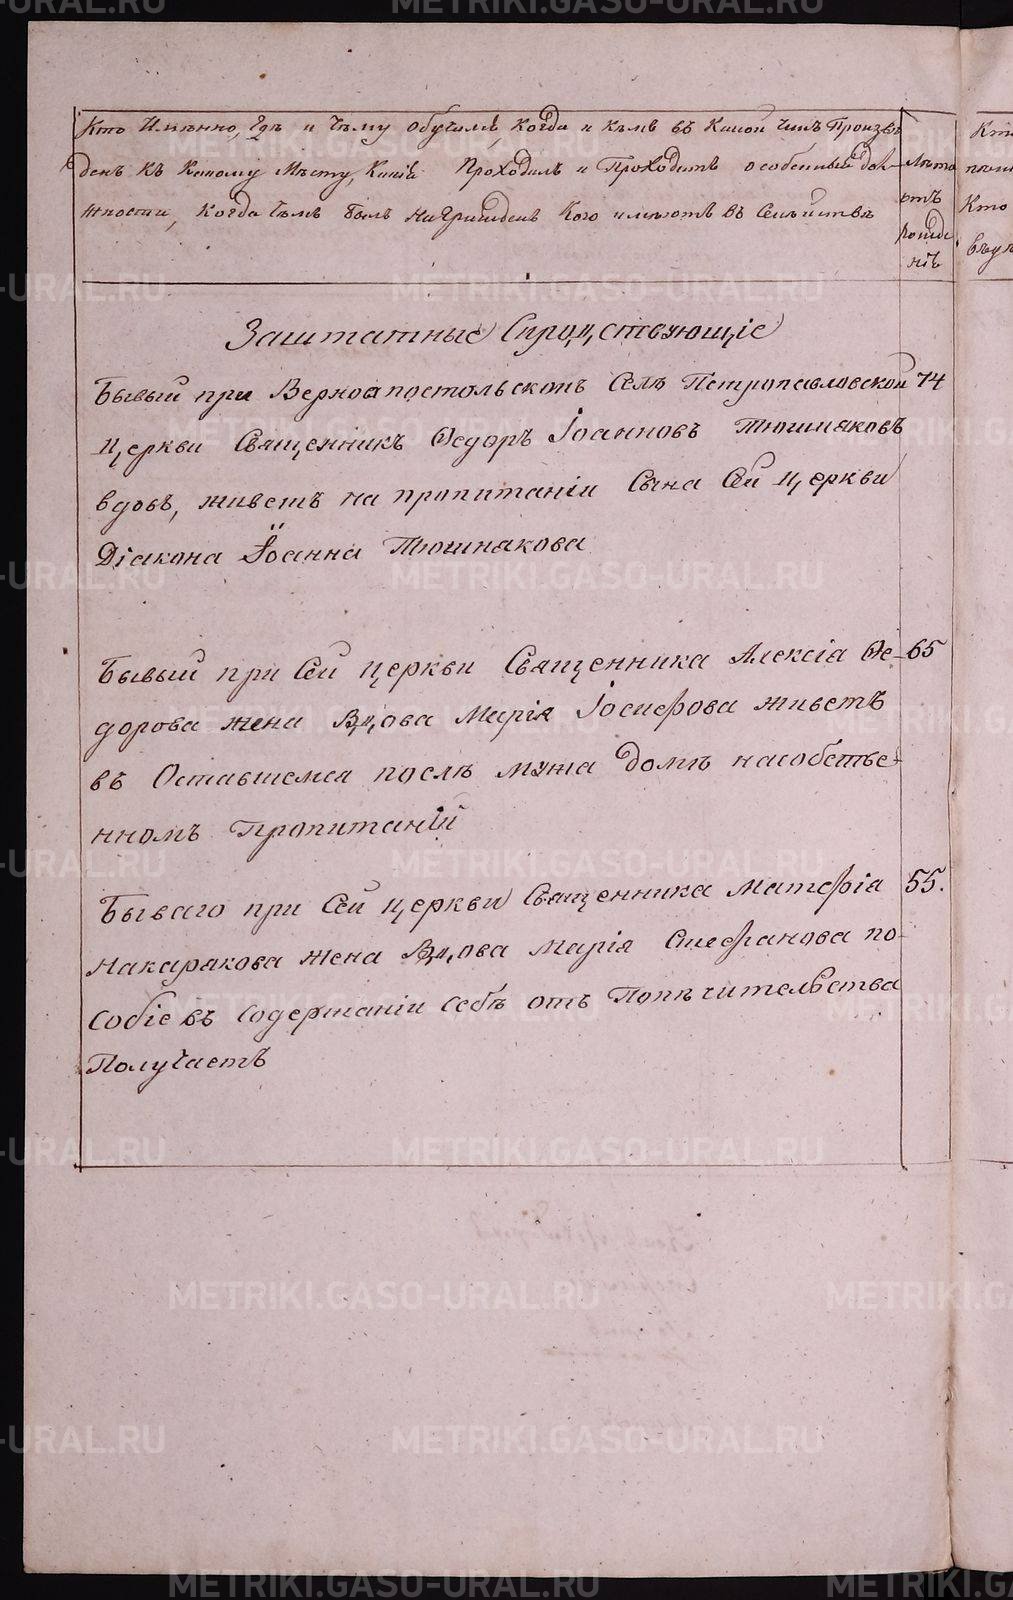 Кто Имянно, Гдѣ и Чему обучался, Когда и Кѣмъ въ Какой Чинъ Произве
денъ къ Какому Мѣсту, Какiя Проходилъ и Проходитъ особенныя дол-
жности, Когда Чѣмъ былъ награжденъ Кого имѣютъ въ Семѣйствѣ
Лѣта
отъ
рожде
нiя
Заштатные Сиродствующiе
Бывый при Верхоапостольскомъ Селѣ Петропавловской 74
Церкви Священникъ Ѳедоръ Iоанновъ Тюшняковъ
вдовъ, живетъ на пропитанiи Сына Сей церкви
Дiакона Iоанна Тюшнякова
Бывый при Сей церкви Священника Алексiя Ѳе- 65
дорова жена Вдова Марiя Iосифова живетъ
въ Оставшемся послѣ мужа домѣ на собстве-
нномъ Пропитанiи
Бываго при Сей церкви Священника Матфiа 55.
Макарякова жена Вдова Марiя Стефанова по-
собiе въ содержанiи себѣ отъ Попѣчительства
Получаетъ
METRIKI.GASO-URAL.RU